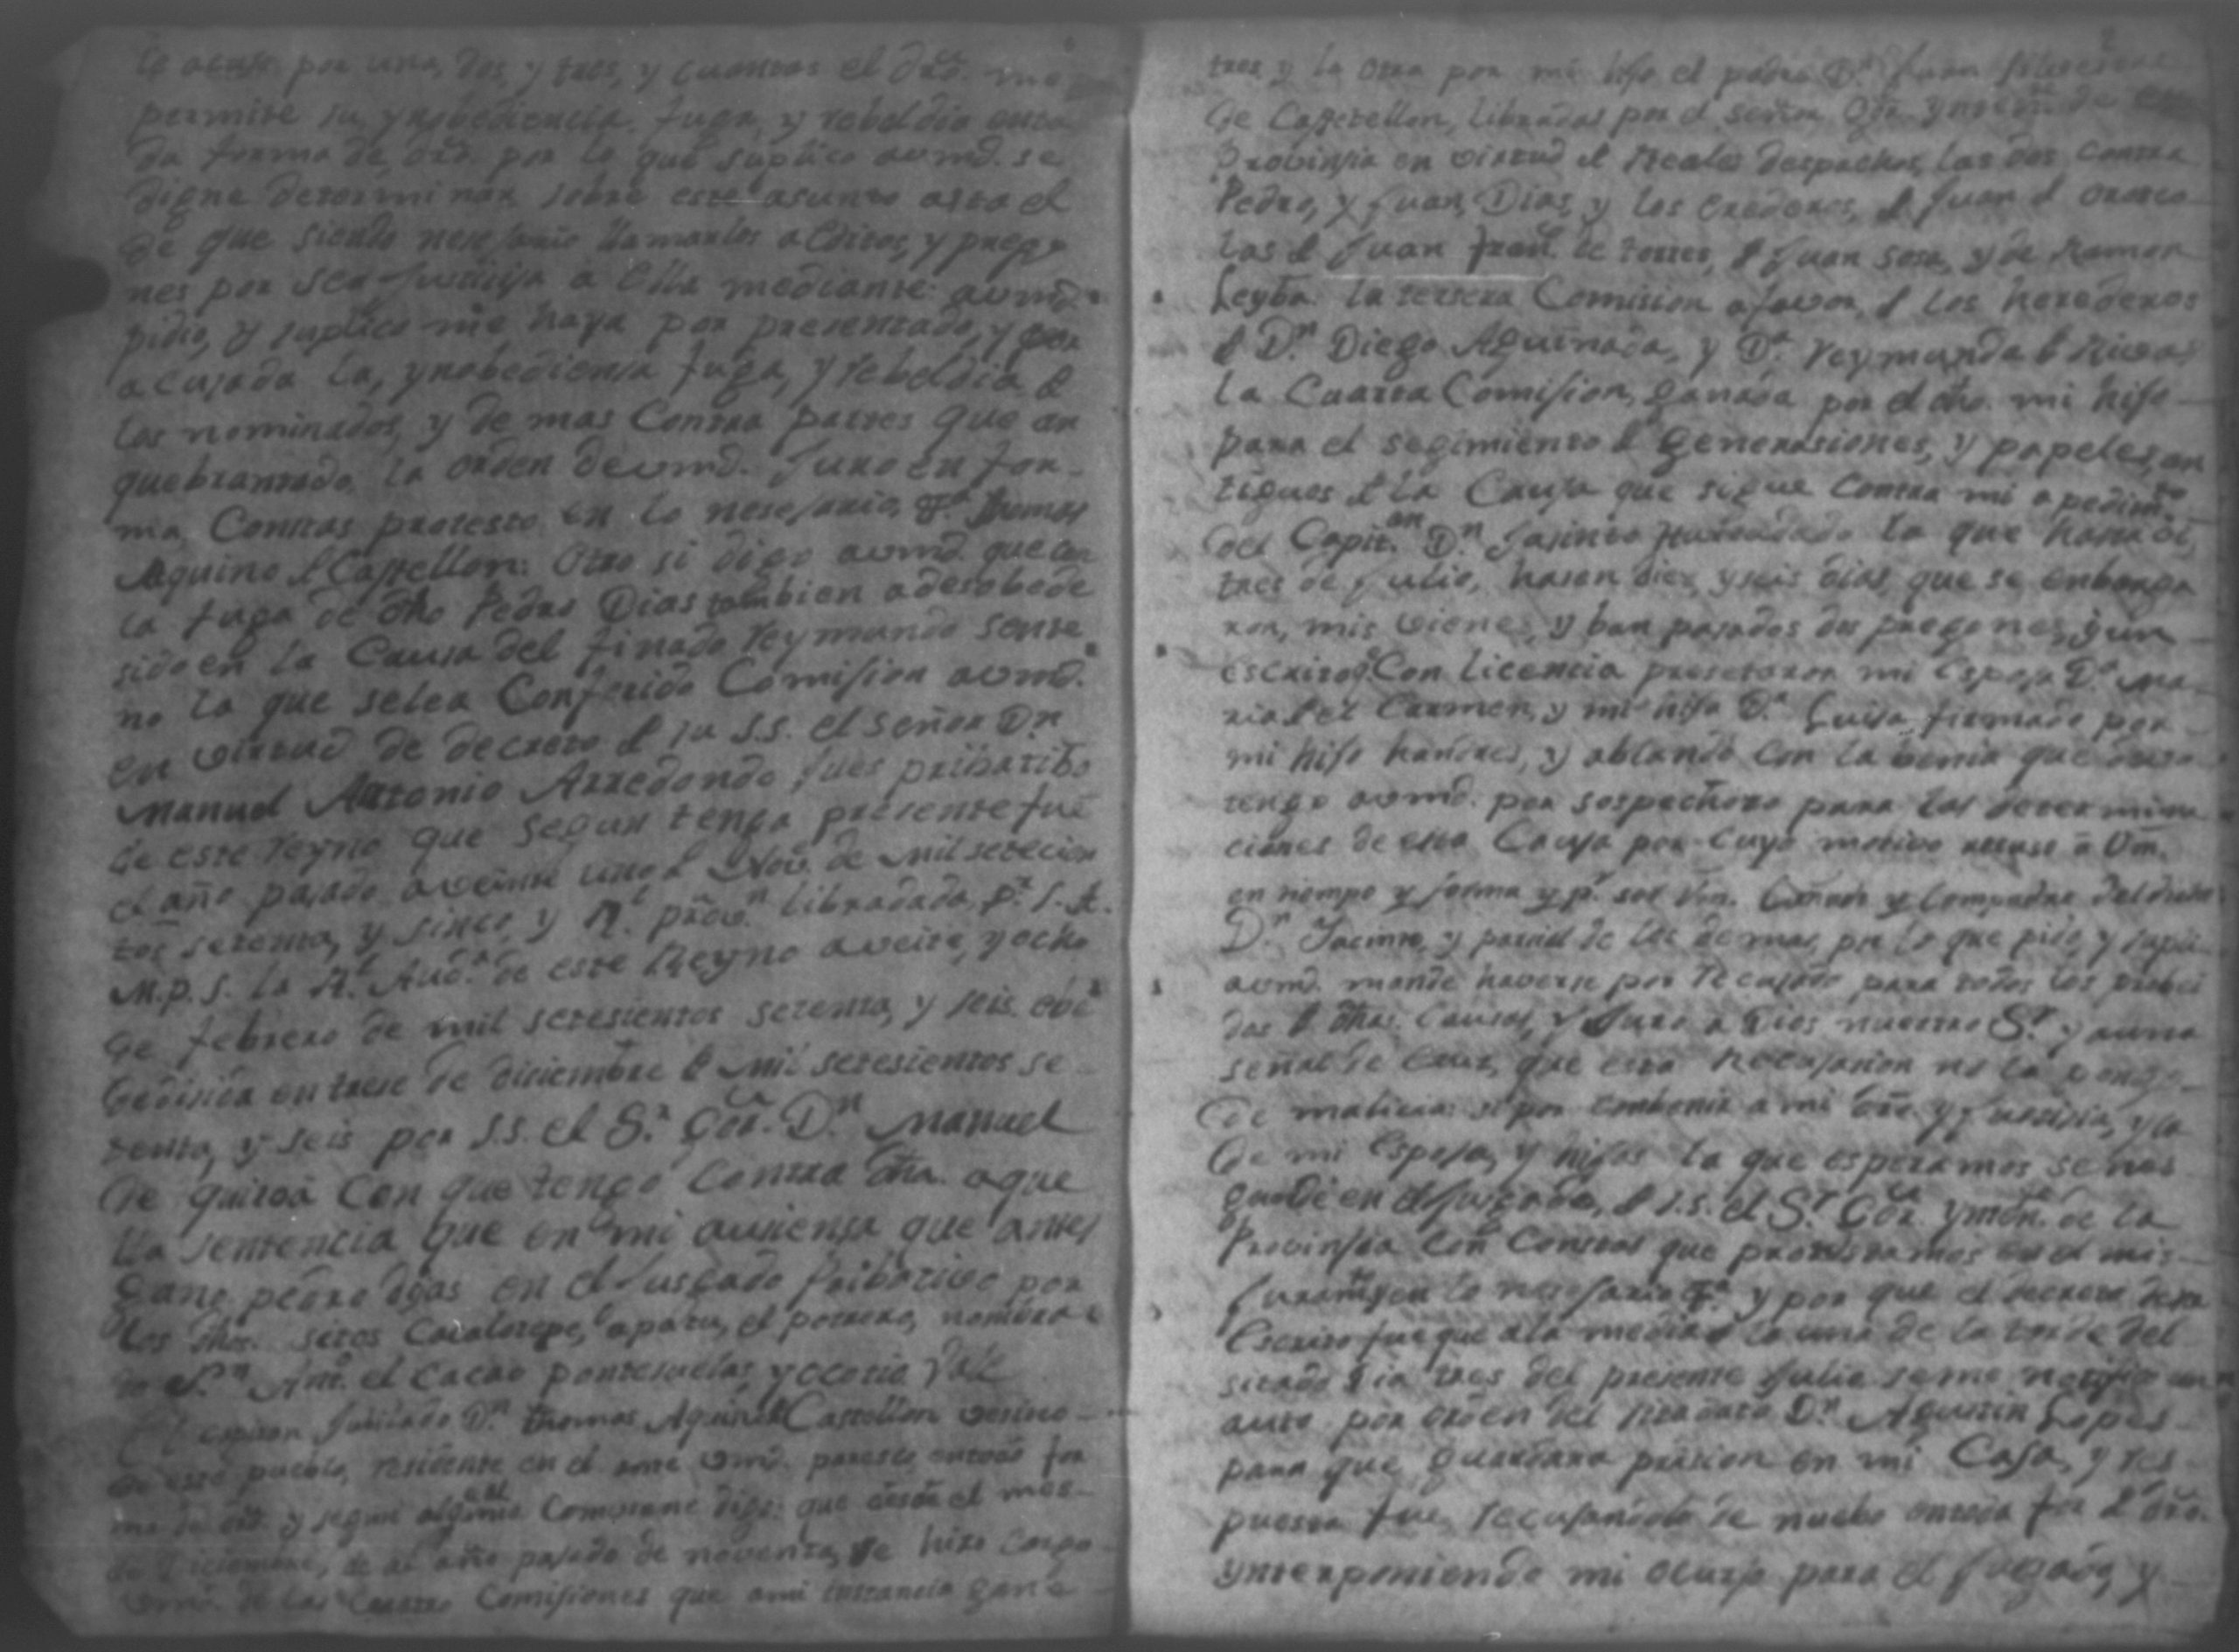 le acuso por una, dos, y tres, y cuantas el dro. me
permite su ynobediencia, fuga, y rebeldia en to
da forma de dro. por lo que suplico a vmd. se
digne determinar sobre este asunto asta el
de que siendo nesesario llamarlos a editos, y prego
nes por ser Justisia a ella mediante a vmd.
pido, y suplico me haya por presentado, y por
acusada la, ynobediensia fuga, y rebeldia de
los nominados, y de mas Contra partes que an
quebrantado la orden de vmd. Juro en for-
ma Contas protesto en lo nesesario, &.ª Thomas
Aquino de Castellon: Otro si digo a vmd. que con
la fuga de dho Pedro Dias tambien a desobede
sido en la Causa del finado Reymundo Sente
no la que selea Conferido Comision a vmd.
en virtud de decreto de su S.S. el señor Dn.
Manuel Antonio Arredondo Jues pribatibo
de este reyno que segun tengo presente fue
el año pasado a veinte uno de Nov.e de mil setecien
tos setenta, y sinco, y R.l prov.n librada
M.P.S. la R.l Aud.a de este Reyno a veite, y ocho
de febrero de mil setesientos setenta, y seis obe
desida en trese de diciembre de mil setesientos se-
tenta, y seis por S.S. el S.r Gor. D.n Manuel
de Quiroa Con que tengo Contra dha. aque
lla sentencia que en mi ausiensa que antes
gano pedro dias en el Jusgado pribatibo por
los dhos. sitos Cacalotepe, apatu, el potrero, nombra
do S.n Ant.o el Cacao pontesuelas, y ocotio Vale
El capitan Jubilado D.n Thomas Aquino de Castellon vesino
de este pueblo, residente en el ante vmd. paresco en toda for
ma de dro. y segun al Comberme digo: que desde el mes
de Diciembre, de el año pasado de noventa, se hizo cargo
vmd. de las Cuatro Comisiones que a mi instancia gané
tres y la otra por mi hijo el padre D.n Juan
de Castellon, libradas por el señor Gor. ynten.te de esta
Provinsia en virtud de Reales despachos, las dos Contra
Pedro, y Juan Dias, y los erederos, de Juan de Orosco
las de Juan Fran.co de torres, de Juan Sosa, y de Ramon
Leyba. la tersera Comision a favor de los herederos
de D.n Diego Aguinada, y D.a Reymunda de Rivas
la Cuarta Comision, ganada por el dho. mi hijo
para el segimiento de Generasiones, y papeles, an
tiguos de la Causa que sigue Contra mi a pedim.to
del Capit.an D.n Jasinto la que hasta oi,
tres de Julio, hasen dies y seis dias, que se enbarga
ron, mis vienes, y ban pasados dos pregones, y un
escrito q.e Con licencia presetaron mi Esposa D.a Ma
ria del Carmen, y mi hija D.a Luisa firmado por
mi hijo handres, y ablando con la benia que devo
tengo a vmd. por sospechoso para las determina
ciones de esta Causa por cuyo motivo recuso a Vm.
en tiempo y forma y p.r ser Vm. y Compadre del dicho
D.n Jacinto, y parcial de los demas, por lo que pido, y supli
a vmd. mande haverse por recusado para todos los
das de dhas. Causas, y Juro a Dios nuestro S.r y a una
señal de Cruz, que esta Recusasion no la pongo
de malicia: si por conbenir a mi dro. y Justisia, y la
de mi Esposa, y hijos la que esperamos se nos
guarde en el Jusgado, de S.S. el S.r Gor. ynten.te de la
Provinsia Con Contas que protestamos en el mis-
Juram.to y en lo nesesario &.a y por que el decreto de
Escrito fue que a la media la una de la tarde del
sitado dia tres del presente Julio se me notifico un
auto por orden del sitado D.n Agustin Lopes
para que guardara prision en mi Casa, y res-
puesta fue recusandolo de nuebo en toda for de dro.
ynterponiendo mi ocurso para el Jusgado, y